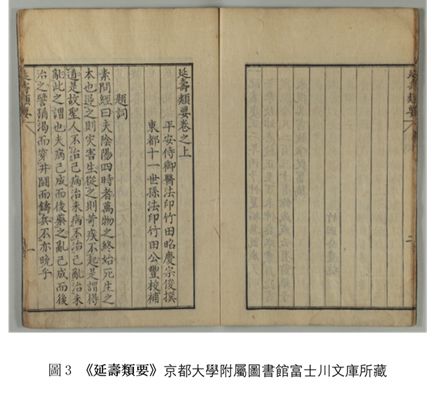 延壽類要
延壽類要卷之上
平安侍御醫法印竹田昭慶宗俊撰
東都十一世孫法印竹田公豐校補
題詞
素問經曰夫陰陽四時者萬物之終始死生之
本也逆之則災害生從之則苛疾不起是謂得
道是故聖人不治已病治未病不治已亂治未
亂此之謂也夫病已成而後藥之亂已成而後
治之譬猶渴而穿井鬭而鑄兵不亦晚乎
延壽類要
圖3 《延壽類要》京都大學附屬圖書館富士川文庫所藏